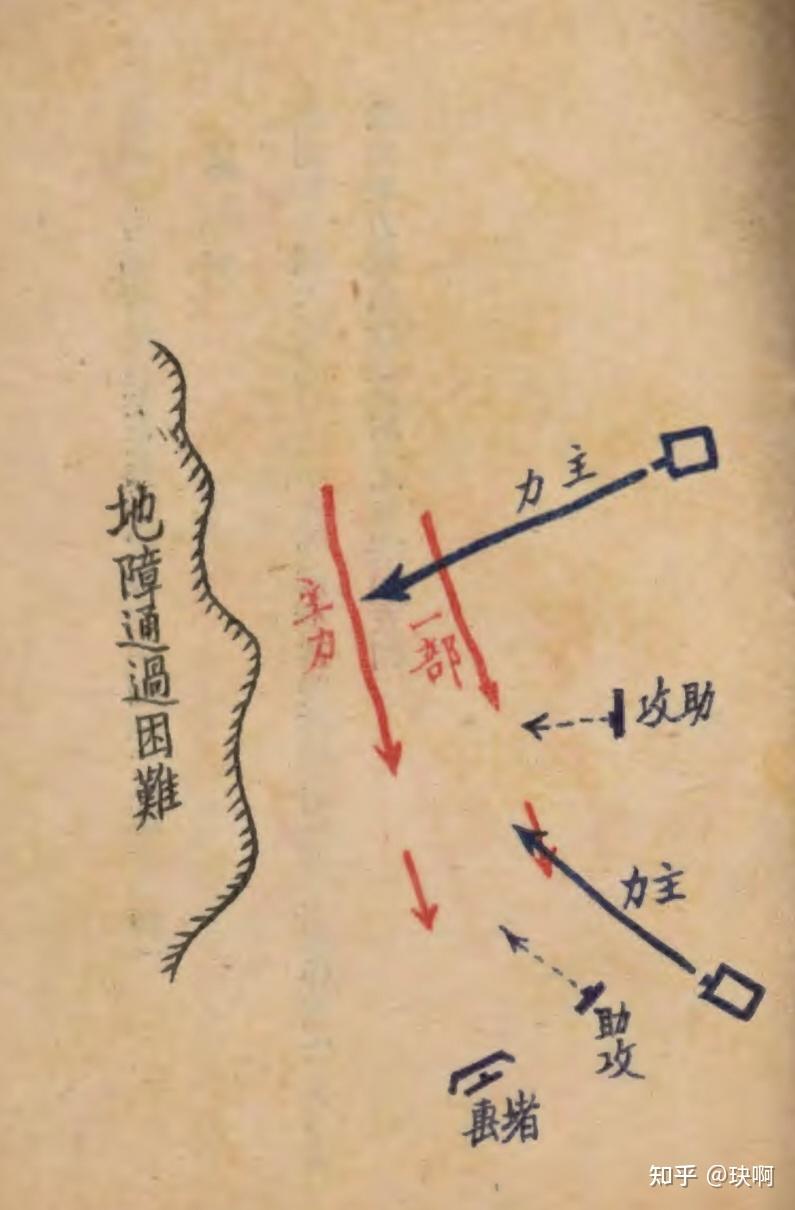 主力
地障通過困難
主力
一部
助攻
主力
助攻
堵
知乎 @玦啊